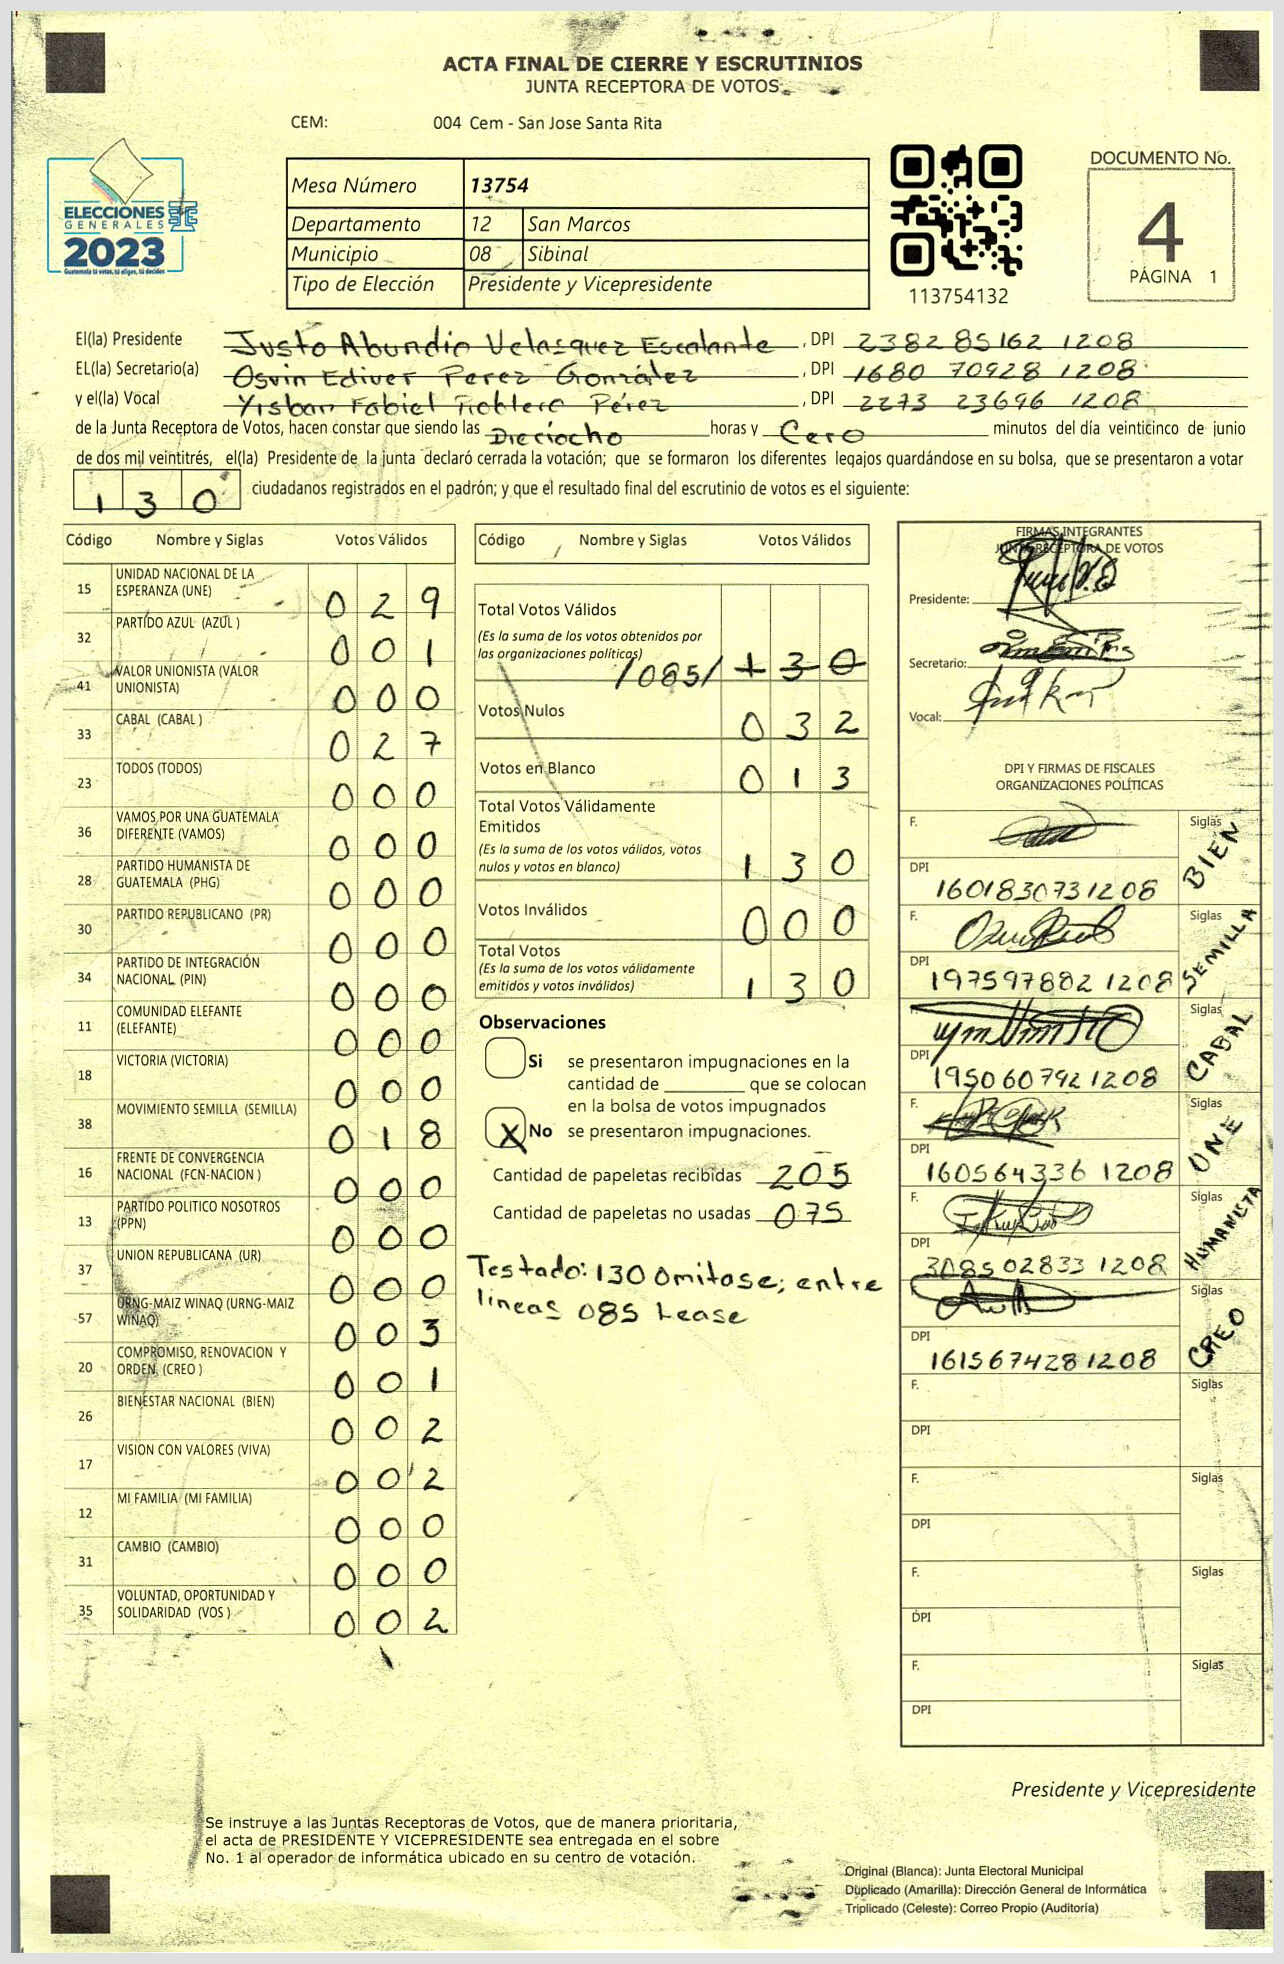 ACTA FINAL DE CIERRE Y ESCRUTINIOS
JUNTA RECEPTORA DE VOTOS
CEM: 004 Cem - San Jose Santa Rita
ELECCIONES
GENERALES
2023
Guatemala tú votas, tú eliges, tú decides
Mesa Número 13754
Departamento 12 San Marcos
Municipio 08 Sibinal
Tipo de Elección Presidente y Vicepresidente
113754132
DOCUMENTO No.
4
PÁGINA 1
El(la) Presidente Justo Abundio Velasquez Escalante, DPI 2382 85162 1208
EL(la) Secretario(a) Osvin Ediver Perez González, DPI 1680 70928 1208
y el(la) Vocal Yisban Fabiel Roblero Pérez, DPI 2273 23696 1208
de la Junta Receptora de Votos, hacen constar que siendo las Dieciocho horas y Cero minutos del día veinticinco de junio
de dos mil veintitrés, el(la) Presidente de la junta declaró cerrada la votación; que se formaron los diferentes legajos guardándose en su bolsa, que se presentaron a votar
130 ciudadanos registrados en el padrón; y que el resultado final del escrutinio de votos es el siguiente:
Código Nombre y Siglas Votos Válidos
15 UNIDAD NACIONAL DE LA ESPERANZA (UNE) 029
32 PARTIDO AZUL (AZUL ) 001
41 VALOR UNIONISTA (VALOR UNIONISTA) 000
33 CABAL (CABAL ) 027
23 TODOS (TODOS) 000
36 VAMOS POR UNA GUATEMALA DIFERENTE (VAMOS) 000
28 PARTIDO HUMANISTA DE GUATEMALA (PHG) 000
30 PARTIDO REPUBLICANO (PR) 000
34 PARTIDO DE INTEGRACIÓN NACIONAL (PIN) 000
11 COMUNIDAD ELEFANTE (ELEFANTE) 000
18 VICTORIA (VICTORIA) 000
38 MOVIMIENTO SEMILLA (SEMILLA) 018
16 FRENTE DE CONVERGENCIA NACIONAL (FCN-NACION ) 000
13 PARTIDO POLITICO NOSOTROS (PPN) 000
37 UNION REPUBLICANA (UR) 000
57 URNG-MAIZ WINAQ (URNG-MAIZ WINAQ) 003
20 COMPROMISO, RENOVACION Y ORDEN (CREO ) 001
26 BIENESTAR NACIONAL (BIEN) 002
17 VISION CON VALORES (VIVA) 002
12 MI FAMILIA (MI FAMILIA) 000
31 CAMBIO (CAMBIO) 000
35 VOLUNTAD, OPORTUNIDAD Y SOLIDARIDAD (VOS ) 002
Código Nombre y Siglas Votos Válidos
Total Votos Válidos
(Es la suma de los votos obtenidos por
las organizaciones políticas) /085/ 130
Votos Nulos 032
Votos en Blanco 013
Total Votos Válidamente
Emitidos
(Es la suma de los votos válidos, votos
nulos y votos en blanco) 130
Votos Inválidos 000
Total Votos
(Es la suma de los votos válidamente
emitidos y votos inválidos) 130
Observaciones
Si se presentaron impugnaciones en la
cantidad de ________ que se colocan
en la bolsa de votos impugnados
X No se presentaron impugnaciones.
Cantidad de papeletas recibidas 205
Cantidad de papeletas no usadas 075
Testado: 130 Omitase; entre
lineas 085 Lease
FIRMAS INTEGRANTES
JUNTA RECEPTORA DE VOTOS
Presidente:
Secretario:
Vocal:
DPI Y FIRMAS DE FISCALES
ORGANIZACIONES POLÍTICAS
F. Siglas BIEN
DPI 1601830731208
F. Siglas SEMILLA
DPI 197597882 1208
F. Siglas CABAL
DPI 1950607921208
F. Siglas UNE
DPI 160564336 1208
F. Siglas HUMANISTA
DPI 3085 02833 1208
F. Siglas CREO
DPI 1615674281208
F. Siglas
DPI
F. Siglas
DPI
F. Siglas
DPI
F. Siglas
DPI
Presidente y Vicepresidente
Se instruye a las Juntas Receptoras de Votos, que de manera prioritaria,
el acta de PRESIDENTE Y VICEPRESIDENTE sea entregada en el sobre
No. 1 al operador de informática ubicado en su centro de votación.
Original (Blanca): Junta Electoral Municipal
Duplicado (Amarilla): Dirección General de Informática
Triplicado (Celeste): Correo Propio (Auditoría)